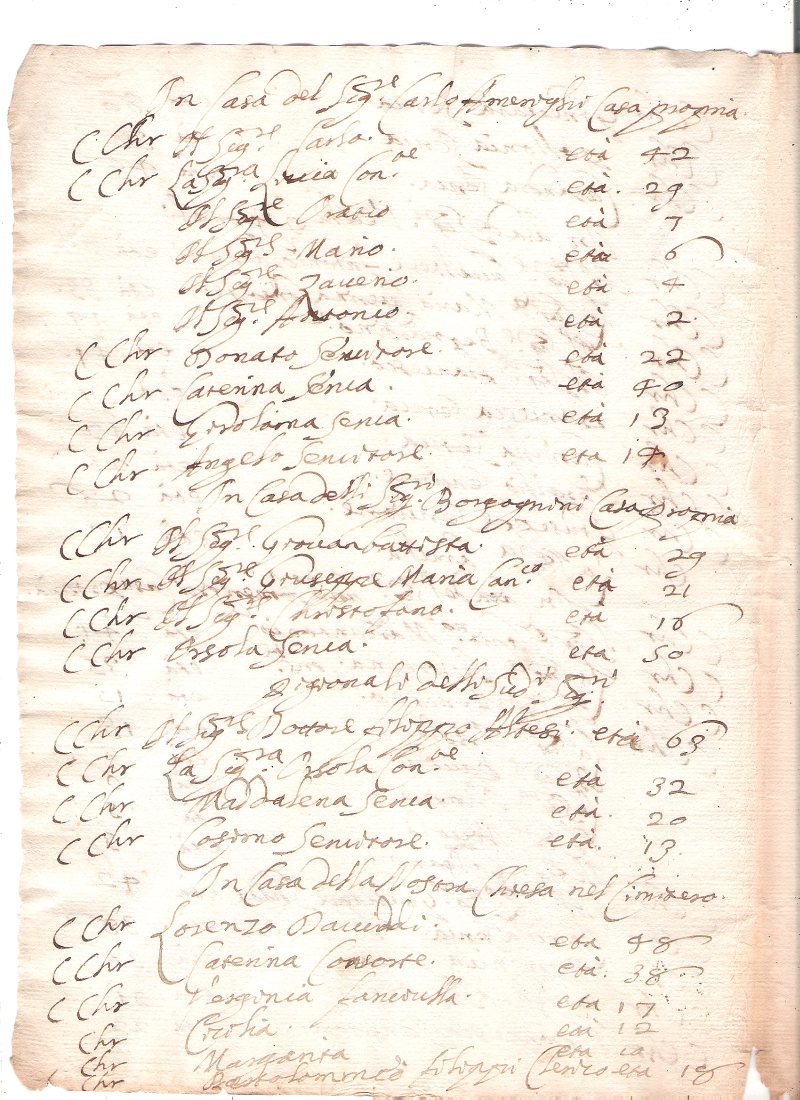 In Casa del Sigre Carlo Amerighi Casa propria
C Chr Il Sigre Carlo. età 42
C Chr La Sigra Livia Conte età. 29
Il Sigre Oratio età 7
Il Sigre Mario. età 6
Il Sigre Zaverio. età 4
Il Sigre Antonio. età 2
C Chr Donato Servitore. età 22
C Chr Caterina Serva. età 40
C Chr Girolama serva. età 13
C Chr Angelo Servitore. eta 14
In Casa delli Sigri Borgognini Casa Propria
C Chr Il Sigre Giovanbattista. età 29
C Chr Il Sigre Giuseppe Maria Canco età 21
C Chr Il Sigre Christofano. età 16
C Chr Orsola Serva. età 50
Pigionali delli Sudi Sigri
C Chr Il Sigre Dottore Filippo età 63
C Chr La Sigra Orsola Conte età 32
C Chr Maddalena Serva. età. 20
C Chr Cosimo Servitore. età. 13
In Casa della Nostra Chiesa nel Cimitero.
C Chr Lorenzo età 48
C Chr Caterina Consorte. età. 38
C Chr Verginia fanciulla. eta 17
Chr Cicilia. età 12
Chr Margarita eta 10
Chr Bartolommeo Filippi Clerico eta 18